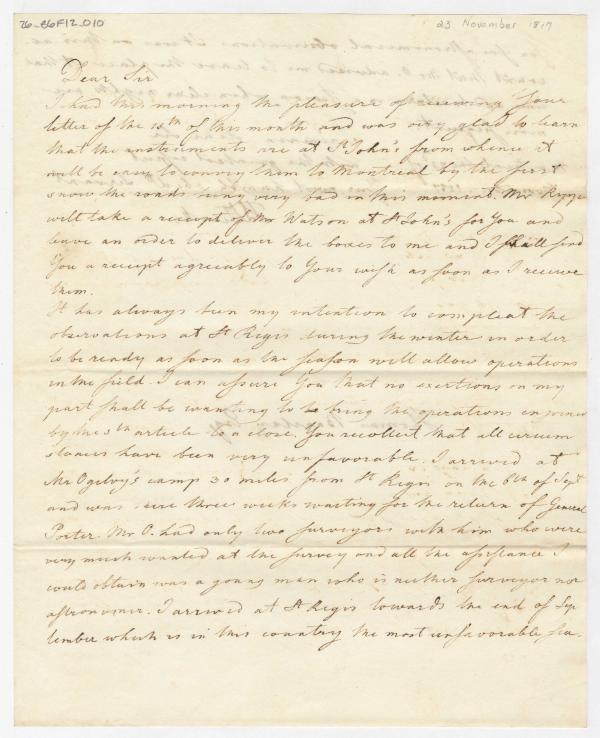 76-86F12_010
23 November 1817
Dear Sir
I had this morning the pleasure of receiving Your
letter of the 10th of this month and was very glad to learn
that the instruments are at St John's from whence it
will be easy to convey them to Montreal by the first
snow, the roads being very bad in this moment. Mr
will take a receipt of Mr Watson at St John's for You and
leave an order to deliver the boxes to me and I shall send
You a receipt agreeably to Your wish as soon as I receive
them.
It has always been my intention to compleat the
observations at St Regis during the winter in order
to be ready as soon as the season will allow operations
in the field. I can assure You that no exertions on my
part shall be wanting to bring the operations enjoined
by the 5th article to a close. You recollect that all circum
stances have been very unfavorable. I arrived at
Mr Ogilvy's camp 30 miles from St Regis on the 6th of Sept
and was there three weeks waiting for the return of General
Porter. Mr O. had only two surveyors with him who were
very much wanted at the survey and all the assistance I
could obtain was a young man who is neither surveyor nor
astronomer. I arrived at St Regis towards the end of Sep
tember which is in this country the most unfavorable sea-